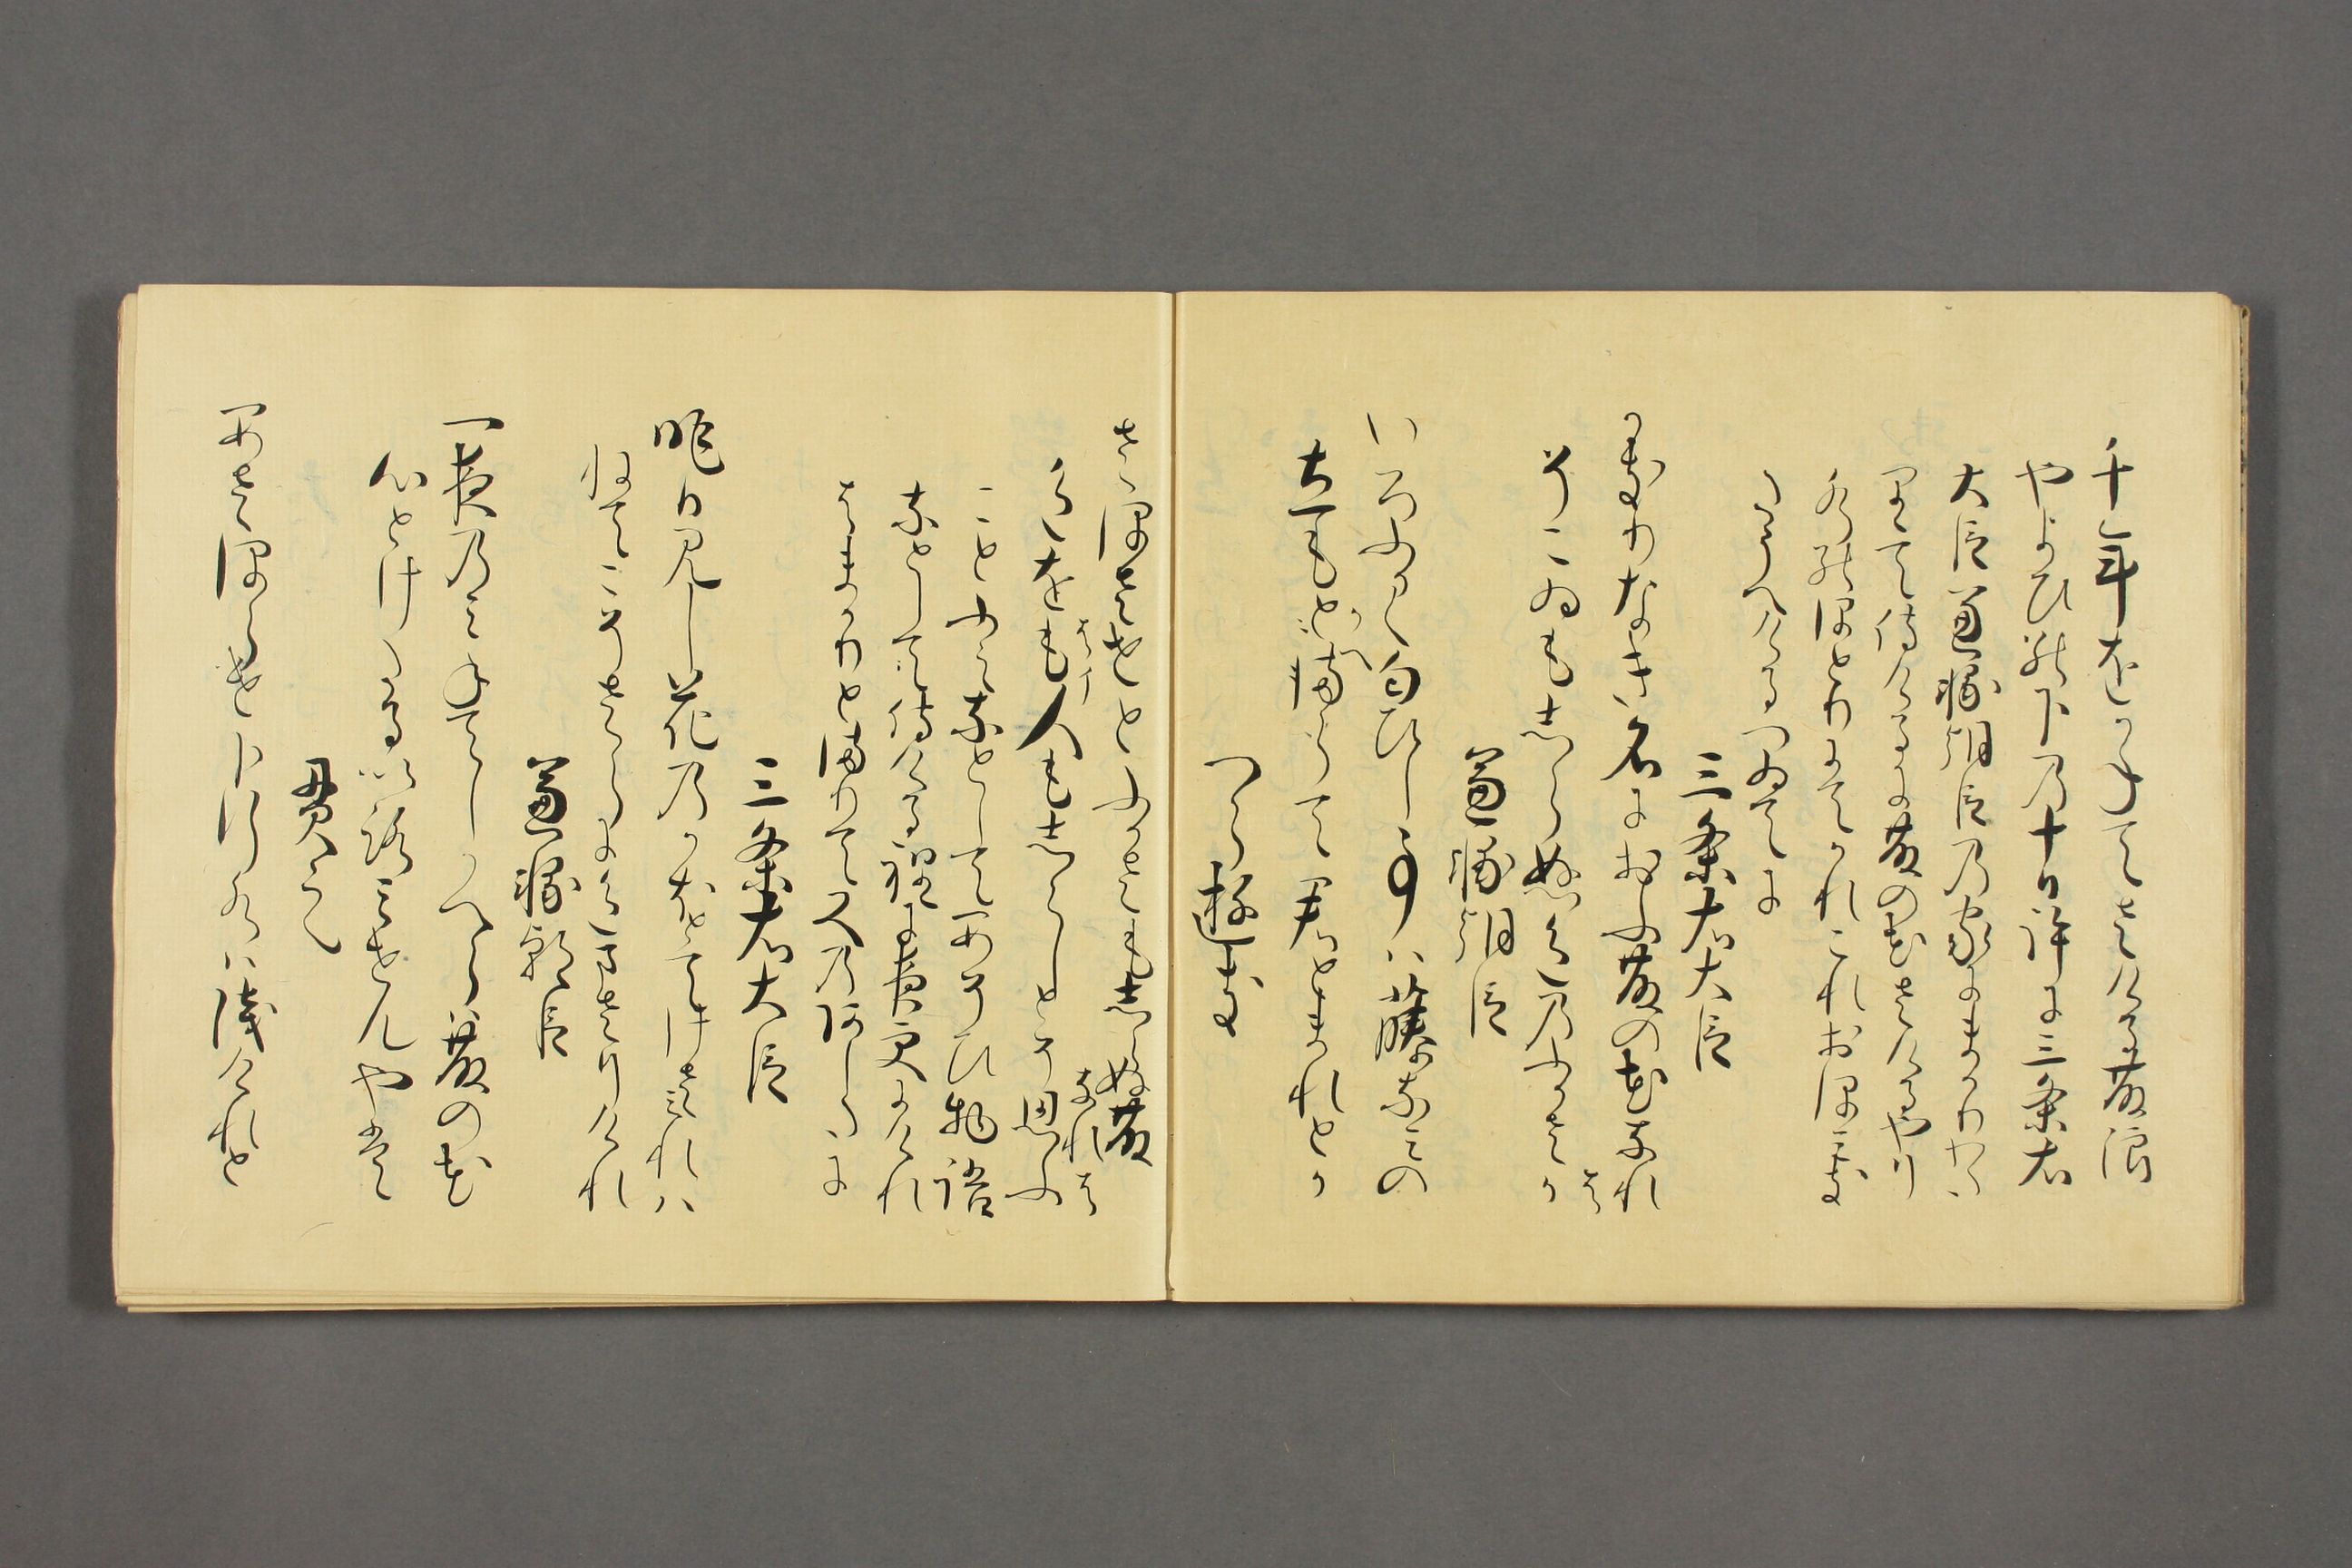 千年さける藤浪
やよひの下の十日許に三条右
大臣兼輔朝臣の家にまかりわ
たりて侍けるに藤の花さけるやり
みつのほとりにてかれこれおほみき
たうへけるつゐてに
三条右大臣
かきりなき名におふ藤の花なれは
そこゐもしらぬ色のふかさか
兼輔朝臣
いろふかく匂ひし事は藤浪の
たちもかへらて君とまれとか
つらゆき
さほさせとふかさもしらぬ藤なれは
いろをも人もしらしとそ思ふ
ことふえなとしてあそひ物語
なとし侍けるほとに夜ふけにけれ
はまかりとまりて又のあしたに
三条右大臣
昨日見し花のかほとてけさみれは
ねてこそさらに色まさりけれ
兼輔朝臣
一夜のみねてしかへらは藤の花
心とけたる色みせんやは
貫之
あさほらけしたゆく水は浅けれと